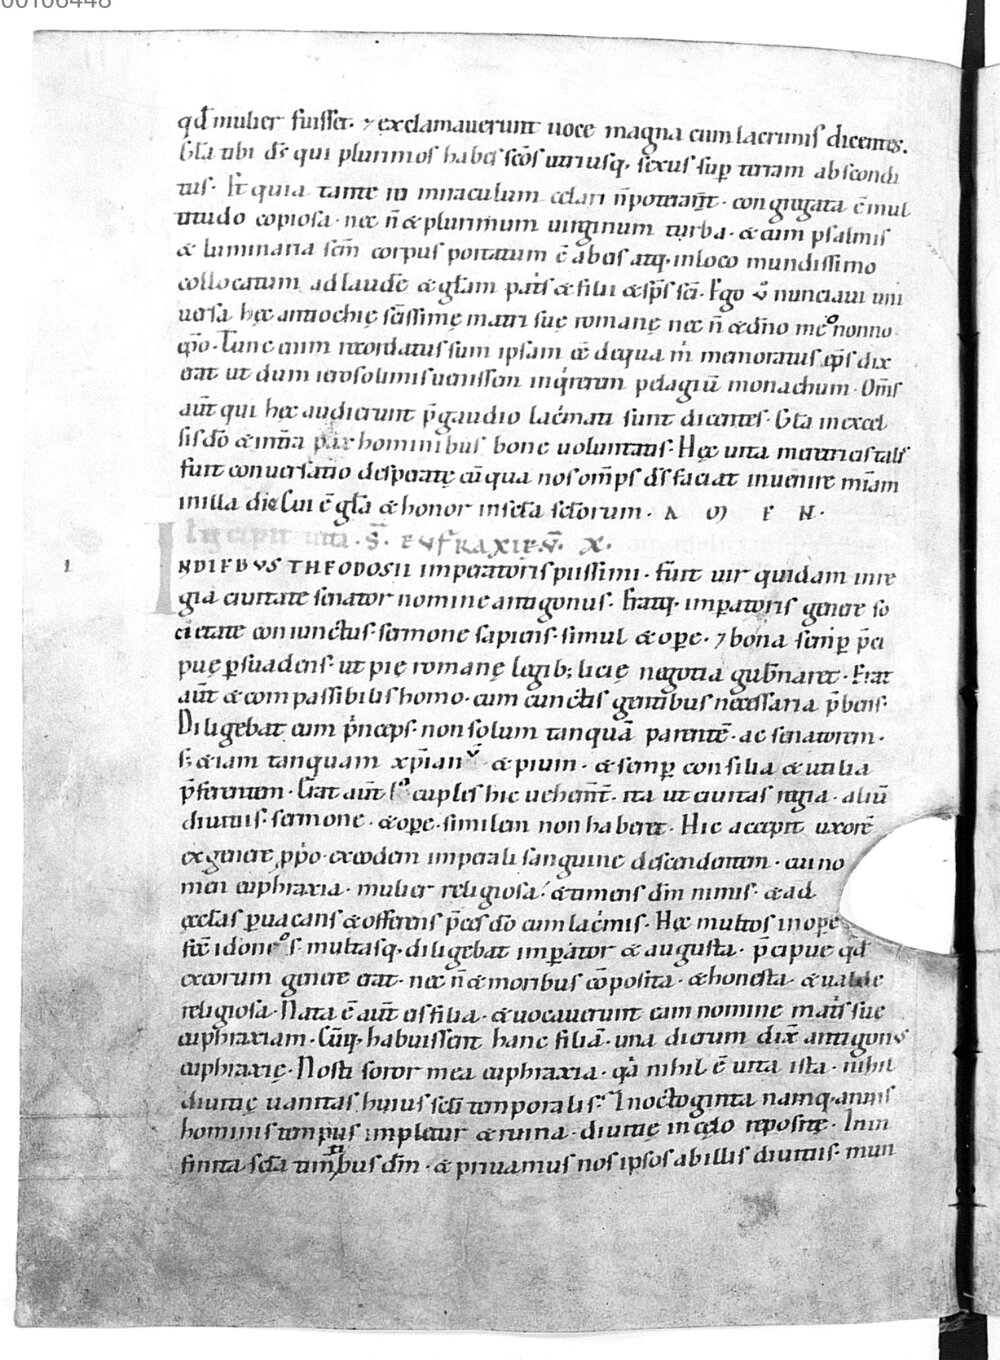 00106448
qđ mulier fuisset· ⁊ exclamauerunt uoce magna cum lacrimis dicentes.
Gl̄a tibi d̄s qui plurimos habes sc̄os utriusq· sexus sup terram abscondi
tus· Et quia tante in miraculum celari n̄ poterant̄· congregata ē mul
titudo copiosa· nec n̄ & plurimum uirginum turba· & cum psalmis
& luminaria sc̄m corpus portatum ē ab eis atq· in loco mundissimo
collocatum ad laudē & gl̄am patis & filii & sp̄s sc̄i· Ego ů nunciaui uni
uersa hęc antiochię sc̄issimę matri suę romanę nec n̄ & dn̄o meo nonno
qm̄o· Tunc cum recordatus sum ipsam ēē de qua m̄ memoratus ep̄s dix
erat ut dum ierosolimis uenissem inqirerem pelagiū monachum· Om̄s
aūt qui hęc audierunt p̄ gaudio lac̄mati sunt dicentes· Gl̄a in excel
sis dō & in t̄ra pax hominibus bone uoluntatis· Hęc uita meretricis talis
fuit conuersatio desperatę cū qua nos om̄ps d̄s faciat inuenire miām
in illa die Cui ē gl̄a & honor in sc̄la sc̄lorum· A M E N·
Incipit uita· S̄· EUFRAXIE·V̄· X·
1
INDIEBUS THEODOSII imperatoris piissimi· fuit uir quidam in re
gia ciuitate senator nomine antigonus· Eratq· imperatoris genere so
cietate coniunctus· sermone sapiens· simul & ope· ⁊ bona semp p̄ci
puę p suadens· ut pię romanę legib; licię negotia gub̄naret· Erat
aūt & compassibilis homo· cum cunctis gentibus necessaria p̄bens·
Diligebat eum p̄nceps· non solum tanquā parentē· ac senatorem·
s; & iam tanquam xp̄ianū & pium· & semp consilia & utilia
p̄ferentem· Erat aūt lo cuples hic uehem̄t· ita ut ciuitas regia· aliū
diuitiis· sermone· & ope· similem non haberet· Hic accepit uxorē
ex genere ppo· ex eodem imperali sanguine descendentem· cui no
men euphraxia· mulier religiosa· & timens dm̄ nimis· & ad
ęcclas p uacans & offerens p̄ces dō cum lac̄mis· Hęc multos inope
fec̄ idoneos· multasq· diligebat imp̄ator & augusta· p̄cipue qđ
ex eorum genere erat· nec n̄ & moribus cōposita· & honesta· & ualde
religiosa· Nata ē aūt eis filia· & uocauerunt eam nomine matris sue
euphraxiam· Cūq· habuissent hanc filiā· una dierum dix̄ antigonus
euphraxię· Nosti soror mea euphraxia· qa nihil ē uita ista· nihil
diuitię uanitas huius sc̄li temporalis· In octoginta namq· annis
hominis tempus impletur & ruina· diuitię in cęlo repositę· In in
finita sc̄la tim̄tibus dm̄· & priuamus nos ipsos ab illis diuitiis· mun